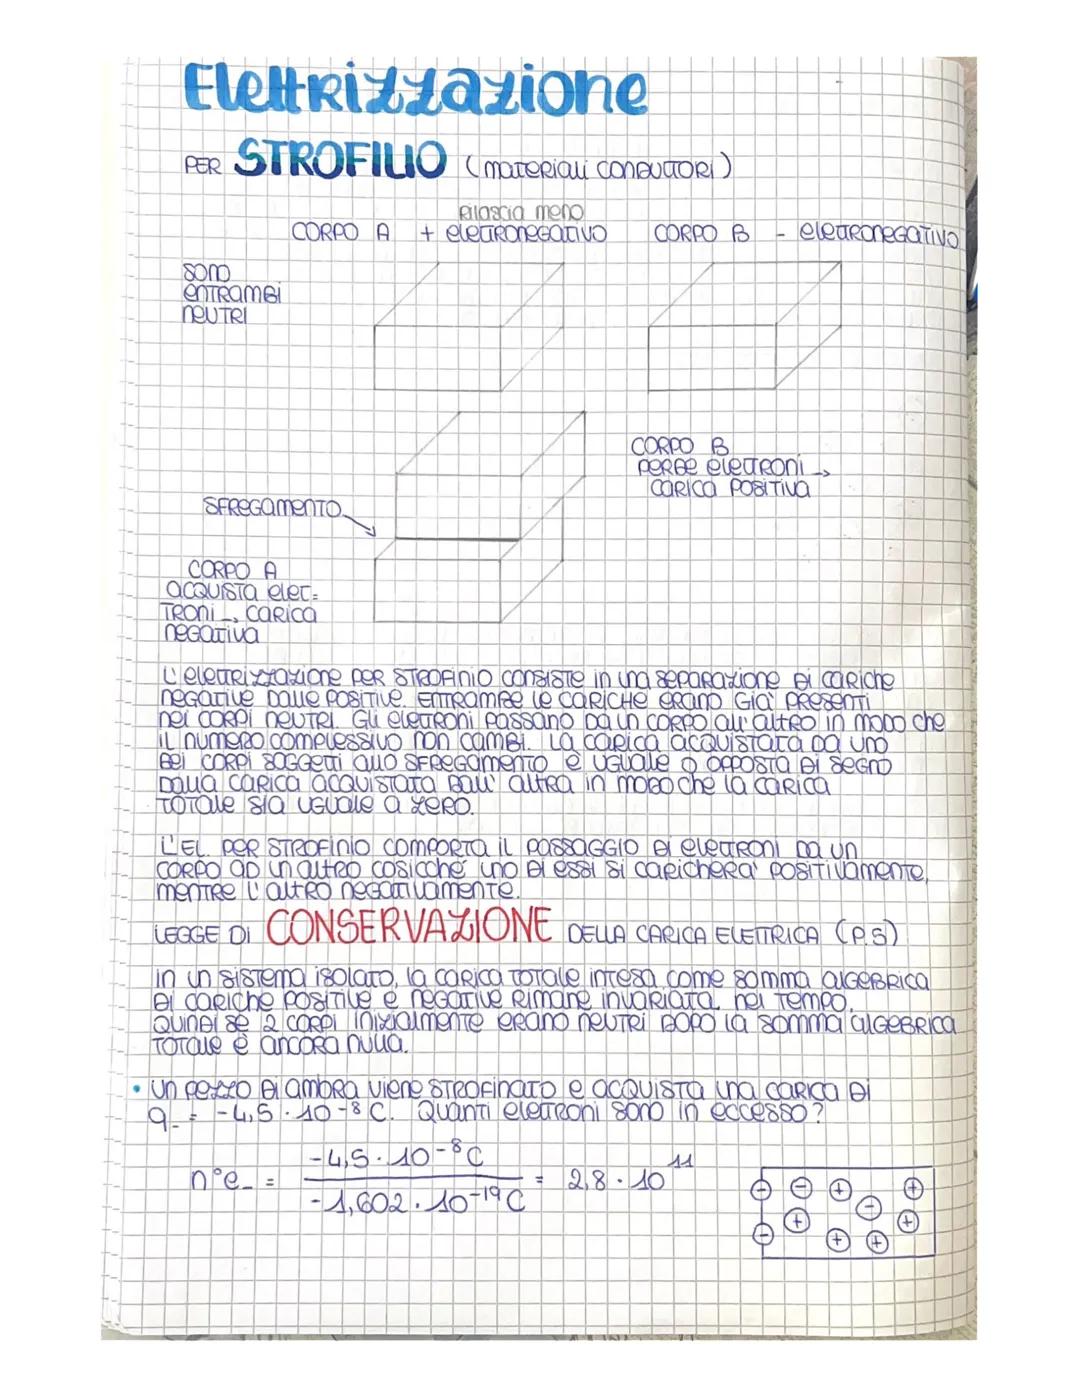 Elettrizzazione
PER STROFILIO (materiali conduttori)
Rilascia meno
CORPO A + elettronegativo CORPO B - elettronegativo
SONO
ENTRAMBI
NEUTRI
CORPO B
PERDE elettroni →
CARICA POSITIVA
SFREGAMENTO
CORPO A
ACQUISTA elet=
TRONI → CARICA
NEGATIVA
L'elettrizzazione per strofinio consiste in una separazione di cariche
negative dalle positive. Entrambe le cariche erano già presenti
nei corpi neutri. Gli elettroni passano da un corpo all'altro in modo che
il numero complessivo non cambi. La carica acquistata da uno
dei corpi soggetti allo sfregamento è uguale o opposta di segno
dalla carica acquistata dall'altra in modo che la carica
totale sia uguale a zero.
L'el. per strofinio comporta il passaggio di elettroni da un
corpo ad un altro cosicché uno di essi si caricherà positivamente,
mentre l'altro negativamente.
LEGGE DI CONSERVAZIONE DELLA CARICA ELETTRICA (P.S)
In un sistema isolato, la carica totale intesa come somma algebrica
di cariche positive e negative rimane invariata nel tempo.
Quindi se 2 corpi inizialmente erano neutri dopo la somma algebrica
totale è ancora nulla.
• Un pezzo di ambra viene strofinato e acquista una carica di
q_ = -4,5 · 10-⁸ C. Quanti elettroni sono in eccesso?
n°e_ = -4,5 · 10-⁸ C / -1,602 · 10-¹⁹ C = 2,8 · 10¹¹
- - + +
+ - +
- + +